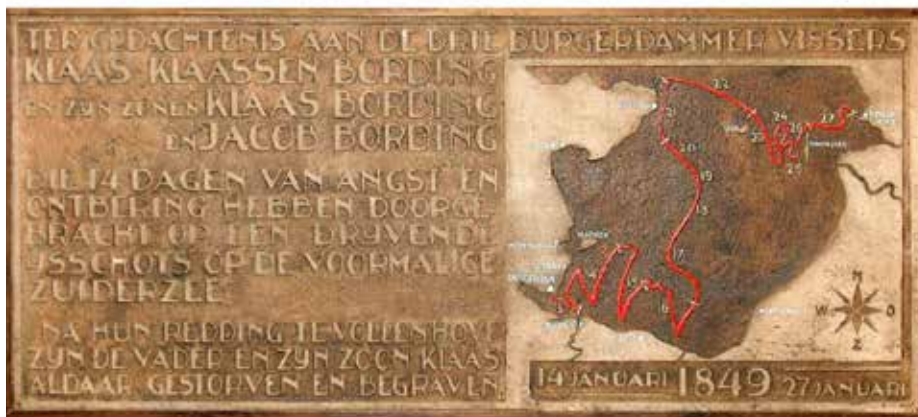 TER GEDACHTENIS AAN DE DRIE DURGERDAMMER VISSERS
KLAAS KLAASSEN BORDING
EN ZIJN ZONEN KLAAS BORDING
EN JACOB BORDING
DIE 14 DAGEN VAN ANGST EN
ONTBERING HEBBEN DOORGE-
BRACHT OP EEN DRIJVENDE
IJSSCHOTS OP DE VOORMALIGE
ZUIDERZEE
NA HUN REDDING TE VOLLENHOVE
ZIJN DE VADER EN ZIJN ZOON KLAAS
ALDAAR GESTORVEN EN BEGRAVEN
22
21
20
19
18
17
16
24
26
27
25
MARKEN
N
W O
Z
14 JANUARI 1849 27 JANUARI